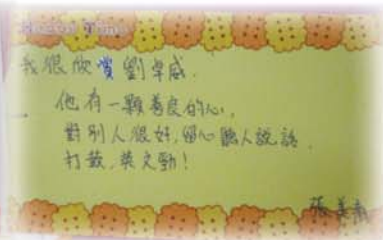 我很欣賞劉卓威.
他有一顆善良的心,
對別人很好,留心聽人說話.
打鼓,英文勁!